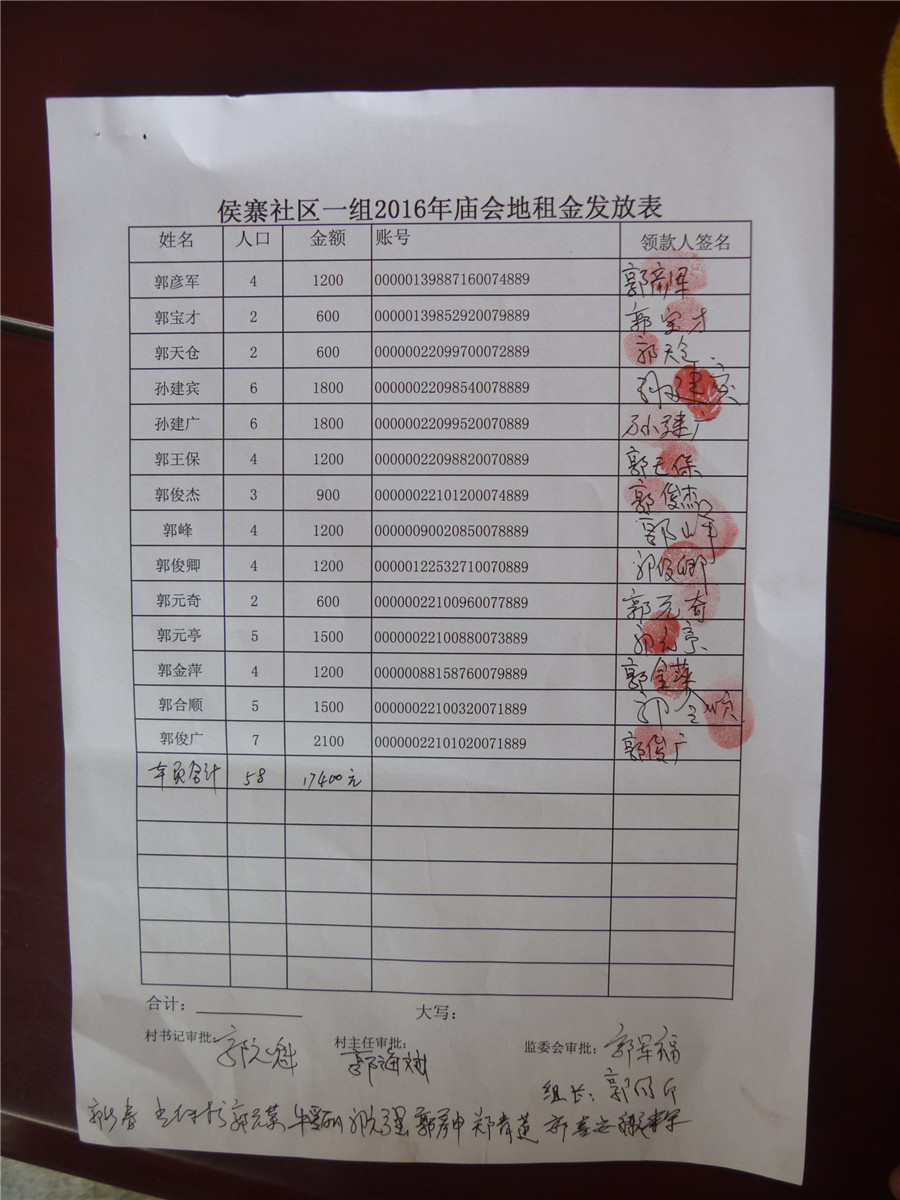 侯寨社区一组2016年庙会地租金发放表
姓名 人口 金额 账号 领款人签名
郭彦军 4 1200 00000139887160074889 郭彦军
郭宝才 2 600 00000139852920079889 郭宝才
郭天仓 2 600 00000022099700072889 郭天仓
孙建宾 6 1800 00000022098540078889 孙建宾
孙建广 6 1800 00000022099520070889 孙建广
郭王保 4 1200 00000022098820070889 郭王保
郭俊杰 3 900 00000022101200074889 郭俊杰
郭峰 4 1200 00000090020850078889 郭峰
郭俊卿 4 1200 00000122532710070889 郭俊卿
郭元奇 2 600 00000022100960077889 郭元奇
郭元亭 5 1500 00000022100880073889 郭元亭
郭金萍 4 1200 00000088158760079889 郭金萍
郭合顺 5 1500 00000022100320071889 郭合顺
郭俊广 7 2100 00000022101020071889 郭俊广
本页合计 58 17400元
合计: 大写:
村书记审批: 郭元魁 村主任审批: 郭海斌 监委会审批: 郭军福
组长: 郭
郭 春 郭元荣 郭 中 郑青莲